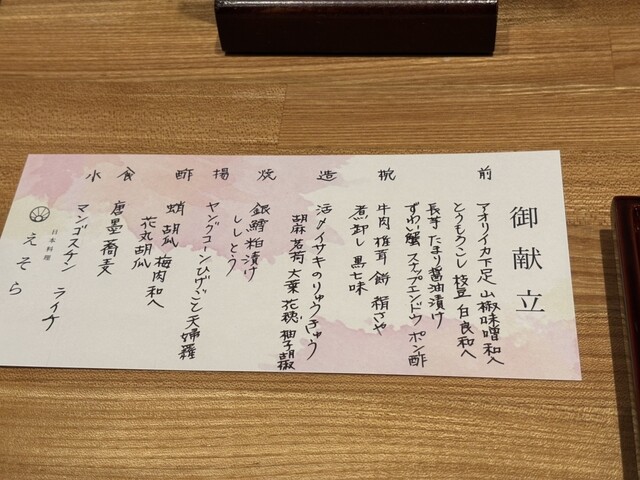 御献立
前
アオリイカ下足 山椒味噌和へ
とうもろこし 枝豆 白良和へ
長芋 たまり醤油漬け
ずわい蟹 スナップエンドウ ポン酢
椀
牛肉 椎茸 餅 絹さや
煮卸し 黒七味
造
活〆イサキのりゅうきゅう
胡麻 茗荷 大葉 花穂 柚子胡椒
焼
銀鱈粕漬け
ししとう
揚
ヤングコーンひげごと天婦羅
酢
蛸 胡瓜 梅肉和へ
花丸胡瓜
食
唐墨蕎麦
水
マンゴスチン ライチ
日本料理
えそら